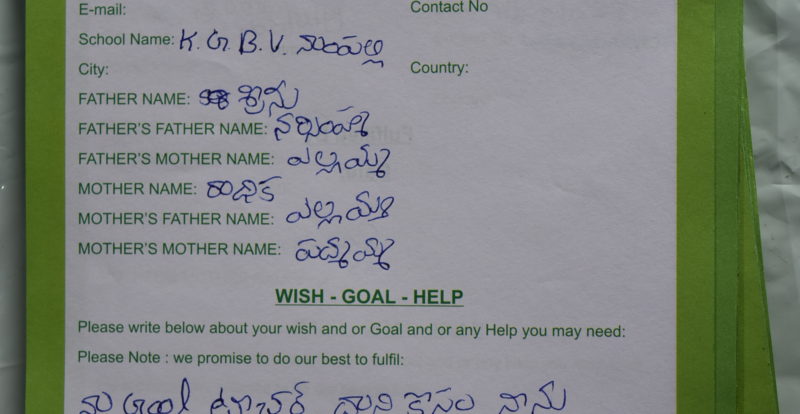 E-mail: Contact No
School Name: K. G. B. V. నాంపల్లి
City: Country:
FATHER NAME: శ్రీను
FATHER'S FATHER NAME: నర్సింహ
FATHER'S MOTHER NAME: ఎల్లమ్మ
MOTHER NAME: రాధిక
MOTHER'S FATHER NAME: ఎల్లయ్య
MOTHER'S MOTHER NAME: పద్మమ్మ
WISH - GOAL - HELP
Please write below about your wish and or Goal and or any Help you may need:
Please Note : we promise to do our best to fulfil:
నా Goal టీచర్ దాని కోసం నాను